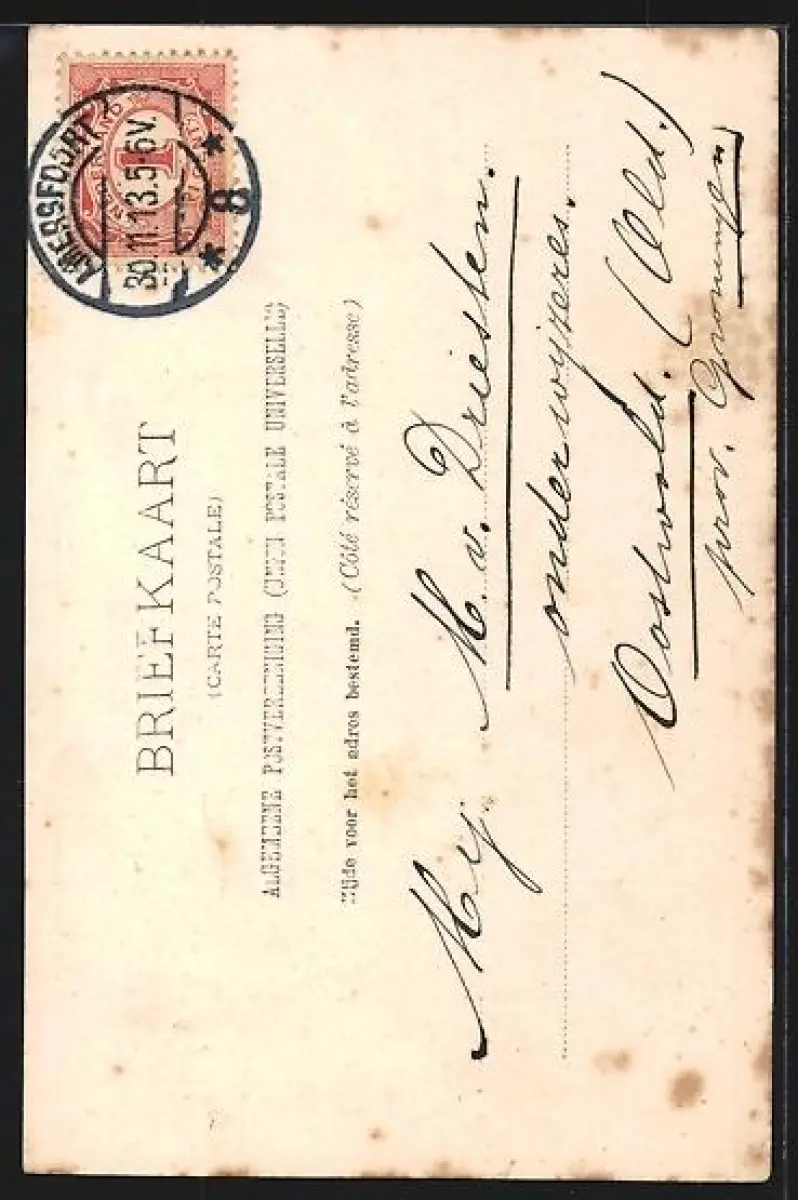 BRIEFKAART
(CARTE POSTALE)
ALGEMEENE POSTVEREENIGING (UNION POSTALE UNIVERSELLE)
Zijde voor het adres bestemd. (Côté réservé à l'adresse)
NEDERLAND
1
AMERSFOORT
30.11.13.5-6V.
* 8 *
Mej. M. v. Driesten.
onderwijzeres.
Oostwold. (Old.)
prov. Groningen